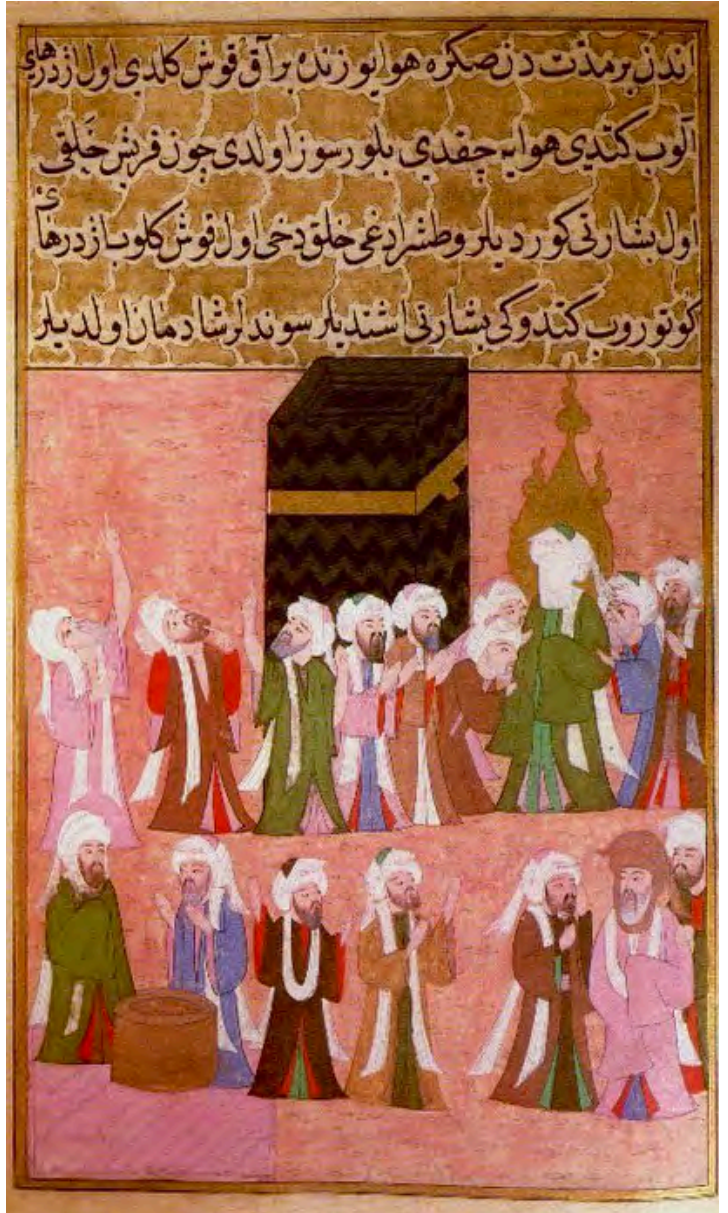 اندن بر مدّت دن صکره هوا یوزنده بر آق قوش کلدی اول اژدرهای
آلوب کتدی هوایه چقدی بلورسوز اولدی چون قریش خلقی
اول بشارتی کوردیلر و طشرادغی خلق دخی اول قوش کلوب اژدرهای
کوتوروب کتدوکی بشارتی اشتدیلر سوندلر شادمان اولدیلر